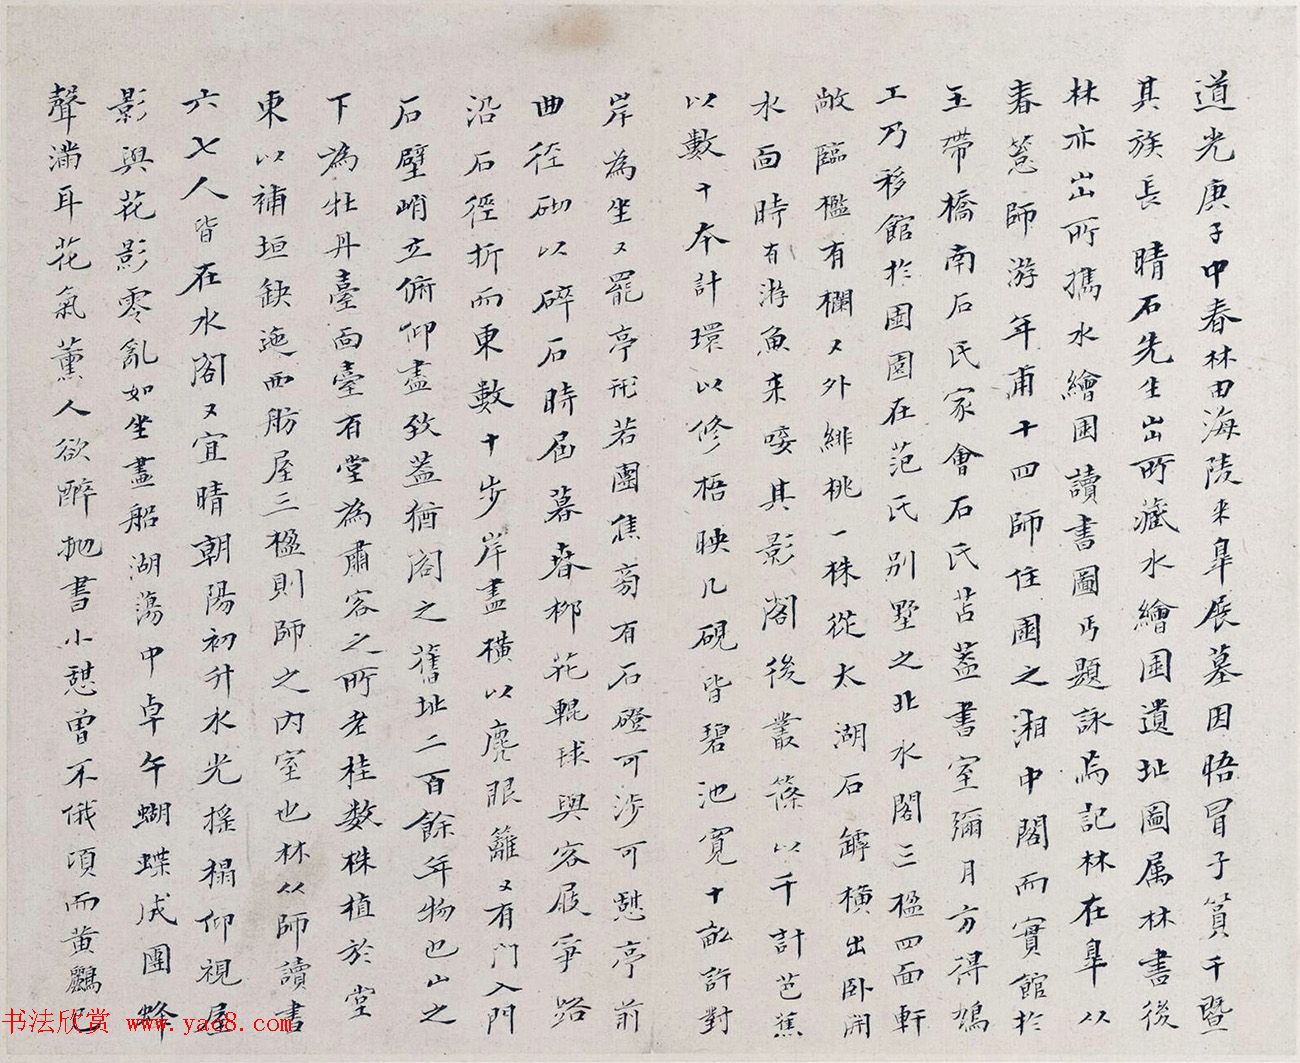 道光庚子中春林由海陵来臯展墓因晤冒子篔千暨
其族長晴石先生出所藏水繪圖遺址圖属林書後
林亦出所攜水繪圖讀書圖丐題詠焉記林在臯以
春薏師游年甫十四師住園之湘中閣而實館於
玉帶橋南石氏家會石氏苫蓋書室彌月方得鳩
工乃移館於園園在范氏别墅之北水閣三楹四面軒
敞臨檻有欄々外緋桃一株從太湖石罅橫出卧開
水面時有游魚来唼其影閣後叢篠以千計芭蕉
以數十本計環以修梧映几硯皆碧池寬十畝許對
岸為坐々罷亭形若團焦旁有石磴可涉可憩亭前
曲径砌以碎石時届暮春柳花輥毬與客屐爭路
沿石徑折而東數十步岸盡橫以麂眼籬々有門入門
石壁峭立俯仰盡致葢猶閣之舊址二百餘年物也山之
下為牡丹臺面臺有堂為肅客之所老桂数株植於堂
東以補垣缺迤西舫屋三楹則師之内室也林從師讀書
六七人皆在水閣々宜晴朝陽初升水光搖榻仰視屋
影與花影零亂如坐畫船湖蕩中卓午蝴蝶成團蜂
聲滿耳花氣薰人欲醉抛書小憩曾不俄頃而黄鸝已
书法欣赏 www.yac8.com